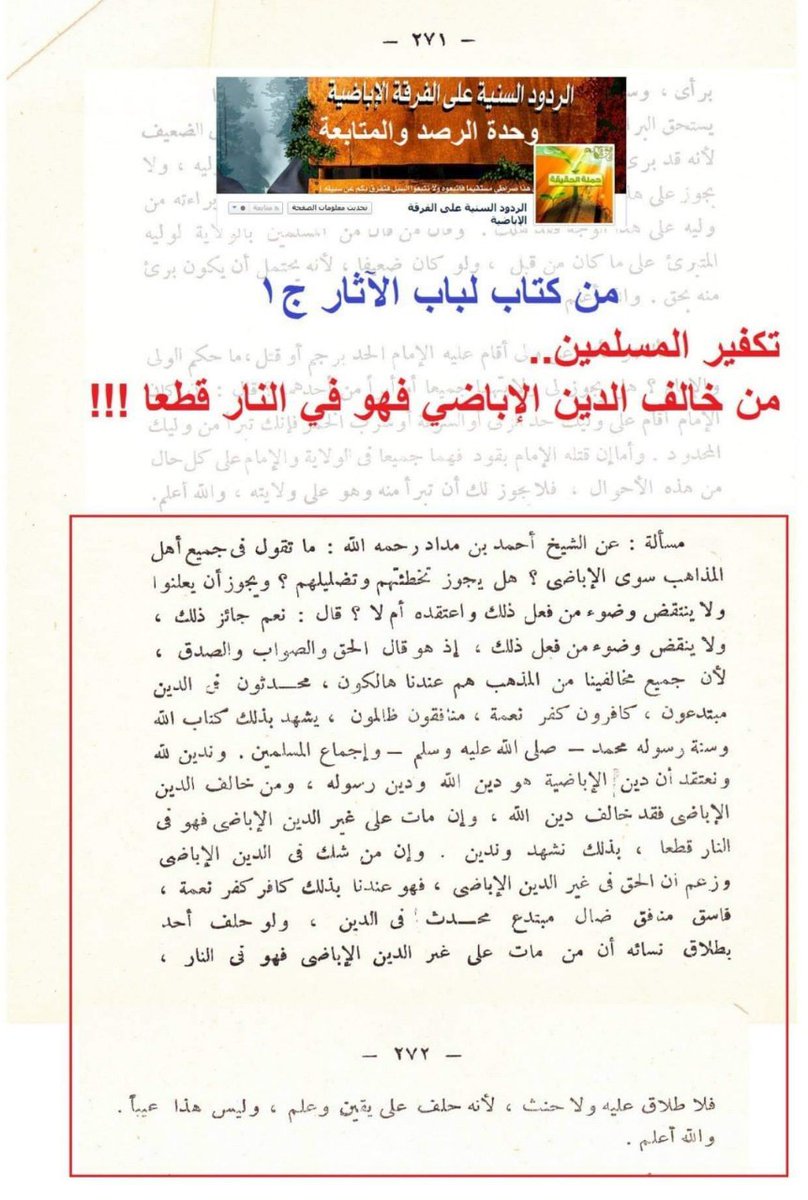 — ٢٧١ —
الردود السنية على الفرقة الإباضية
وحدة الرصد والمتابعة
حملة الحقيقة
هذا صراطي مستقيما فاتبعوه ولا تتبعوا السبل فتفرق بكم عن سبيله
الردود السنية على الفرقة الإباضية
تحديث معلومات الصفحة
متابعة
برأى ، وسـ
يستحق البرا
الضعيف
لأنه قد برئ
وليه ، ولا
يجوز على هذ
براءته من
وليه على هذا الوجه
وقال من قال من المسلمين بالولاية لوليه
المتبرئ على ما كان من قبل ، ولو كان ضعيفا ، لأنه يحتمل أن يكون برئ
منه بحق .
من كتاب لباب الآثار ج١
أقام عليه الإمام الحد برجم أو قتل ، ما حكم الولى
تكفير المسلمين..
من خالف الدين الإباضي فهو في النار قطعا !!!
الإمام أقام على وليك حد
فإنك تبرأ من وليك
المحدود . وأما إن قتله الإمام بقود فهما جميعا فى الولاية والإمام على كل حال
من هذه الأحوال ، فلا يجوز لك أن تبرأ منه وهو على ولايته ، والله أعلم .
مسألة : عن الشيخ أحمد بن مداد رحمه الله : ما تقول فى جميع أهل
المذاهب سوى الإباضى ؟ هل يجوز تخطئتهم وتضليلهم ؟ ويجوز أن يعلنوا
ولا ينتقض وضوء من فعل ذلك واعتقده أم لا ؟ قال : نعم جائز ذلك ،
ولا ينقض وضوء من فعل ذلك ، إذ هو قال الحق والصواب والصدق ،
لأن جميع مخالفينا من المذهب هم عندنا هالكون ، محدثون فى الدين
مبتدعون ، كافرون كفر نعمة ، منافقون ظالمون ، يشهد بذلك كتاب الله
وسنة رسوله محمد — صلى الله عليه وسلم — وإجماع المسلمين . وندين لله
ونعتقد أن دين الإباضية هو دين الله ودين رسوله ، ومن خالف الدين
الإباضى فقد خالف دين الله ، وإن مات على غير الدين الإباضى فهو فى
النار قطعا ، بذلك نشهد وندين . وإن من شك فى الدين الإباضى
وزعم أن الحق فى غير الدين الإباضى ، فهو عندنا بذلك كافر كفر نعمة ،
فاسق منافق ضال مبتدع محدث فى الدين ، ولو حلف أحد
بطلاق نسائه أن من مات على غير الدين الإباضى فهو فى النار ،
— ٢٧٢ —
فلا طلاق عليه ولا حنث ، لأنه حلف على يقين وعلم ، وليس هذا عيباً .
والله أعلم .